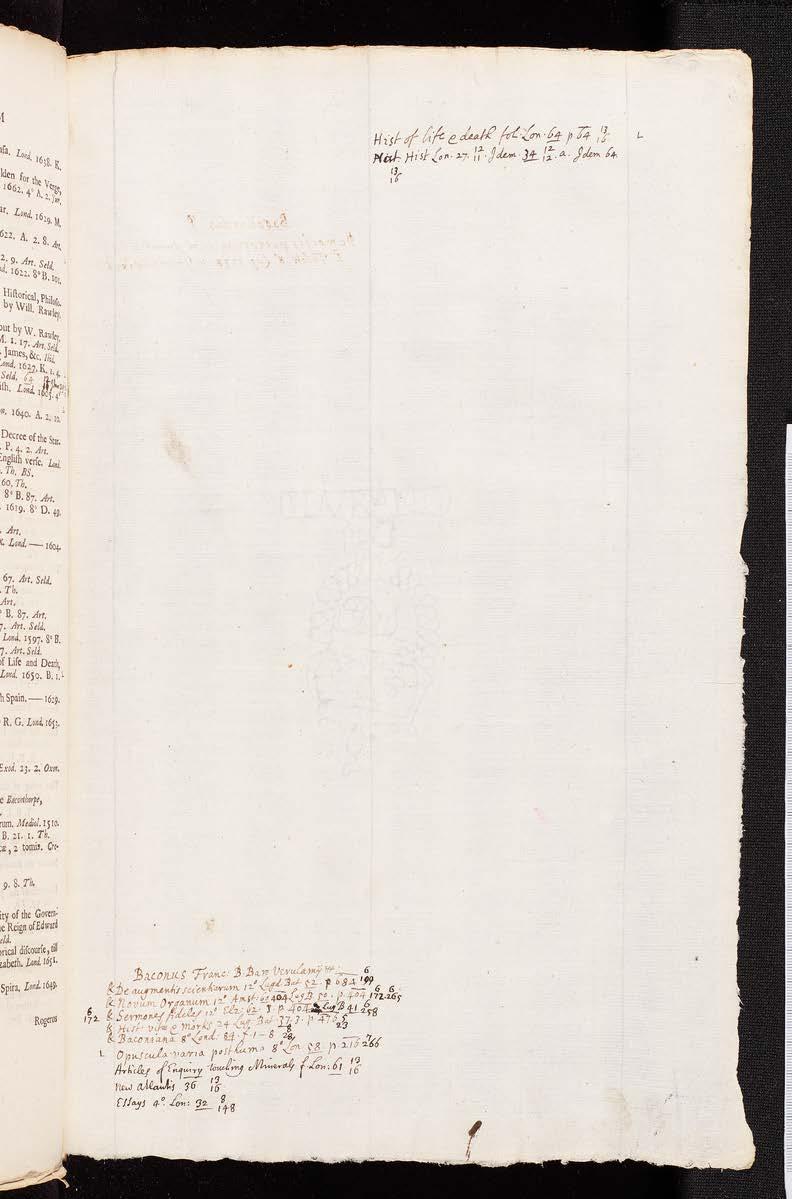 M
asa. Lond. 1638. K.
lden for the Verge,
1662. 4° A. 2. Jur.
ar. Lond. 1629. M.
622. A. 2. 8. Art.
2. 9. Art. Seld.
nd. 1622. 8° B. 101.
Historical, Philoso.
by Will. Rawley.
out by W. Rawley.
M. 1. 17. Art. Seld.
James, &c. Ibid.
Lond. 1627. K. 1. 4.
Seld. 64
ish. Lond. 1605. 4°
n. 1640. A. 2. 10.
Decree of the Star.
P. 4. 2. Art.
English verse. Lond.
Th. BS.
60. Th.
8° B. 87. Art.
1619. 8° D. 49.
Art.
K. Lond. — 1604.
67. Art. Seld.
Th.
Art.
° B. 87. Art.
7. Art. Seld.
Lond. 1597. 8° B.
7. Art. Seld.
of Life and Death,
Lond. 1650. B. 1.
h Spain. — 1629.
R. G. Lond. 1653.
Exod. 23. 2. Oxon.
e Baconthorpe,
rum. Mediol. 1510.
B. 21. 1. Th.
æ, 2 tomis. Cre-
9. 8. Th.
ity of the Govern-
e Reign of Edward
eld.
orical discourse, till
zabeth. Lond. 1651.
Spira. Lond. 1649.
Rogerus
Hist of life & death fol. Lon. 64 p 64 13/16 L
Nat. Hist Lon. 27. 12/11. Idem. 34 12/12. a. Idem 64.
13/16
Baconus Franc. B. Baro Verulamij
& De augmentis scientiarum 12° Lugd Bat 52. p 684 6/199
& Novum Organum 12° Amst. 60 404 Lug B 50. p. 404 6/172 6/265
6/172 & Sermones fideles 12° Elz. 62. p. 404 Lug B 41 6/258
& Hist. vitæ & Mortis 24 Lug. Bat 37. p. 476 5/23
& Baconiana 8° Lond. 84. f. 1-8 8/28
L Opuscula varia posthuma 8° Lon. 58. p. 216 7/266
Articles of Enquiry touching Minerals f. Lon. 61 13/16
New Atlantis 36 13/16
Essays 4°. Lon: 32 8/148